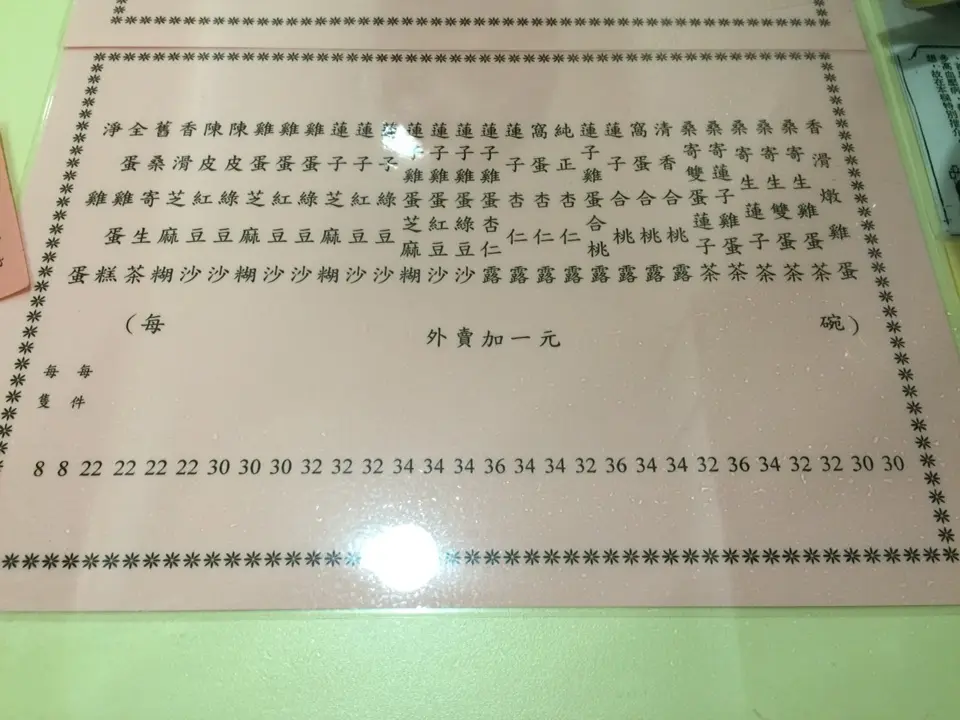 香滑燉雞蛋 30
桑寄生雞蛋茶 30
桑寄生雙蛋茶 32
桑寄生蓮子茶 32
桑寄蓮子雞蛋茶 34
桑寄雙蛋蓮子茶 36
清香合桃露 32
窩蛋合桃露 34
蓮子合桃露 34
蓮子雞蛋合桃露 36
純正杏仁露 32
窩蛋杏仁露 34
蓮子杏仁露 34
蓮子雞蛋杏仁露 36
蓮子雞蛋綠豆沙 34
蓮子雞蛋紅豆沙 34
蓮子雞蛋芝麻糊 34
蓮子綠豆沙 32
蓮子紅豆沙 32
蓮子芝麻糊 32
雞蛋綠豆沙 30
雞蛋紅豆沙 30
雞蛋芝麻糊 30
陳皮綠豆沙 22
陳皮紅豆沙 22
香滑芝麻糊 22
舊桑寄生茶 22
全蛋雞蛋糕 每件 8
淨雞蛋 每隻 8
(每碗)
外賣加一元